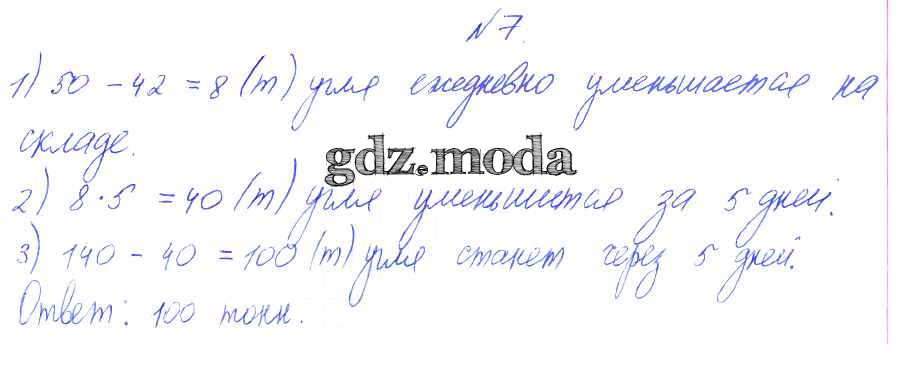 № 7.
1) 50 - 42 = 8 (т) угля ежедневно уменьшается на
складе.
gdz.moda
2) 8 · 5 = 40 (т) угля уменьшится за 5 дней.
3) 140 - 40 = 100 (т) угля станет через 5 дней.
Ответ: 100 тонн.